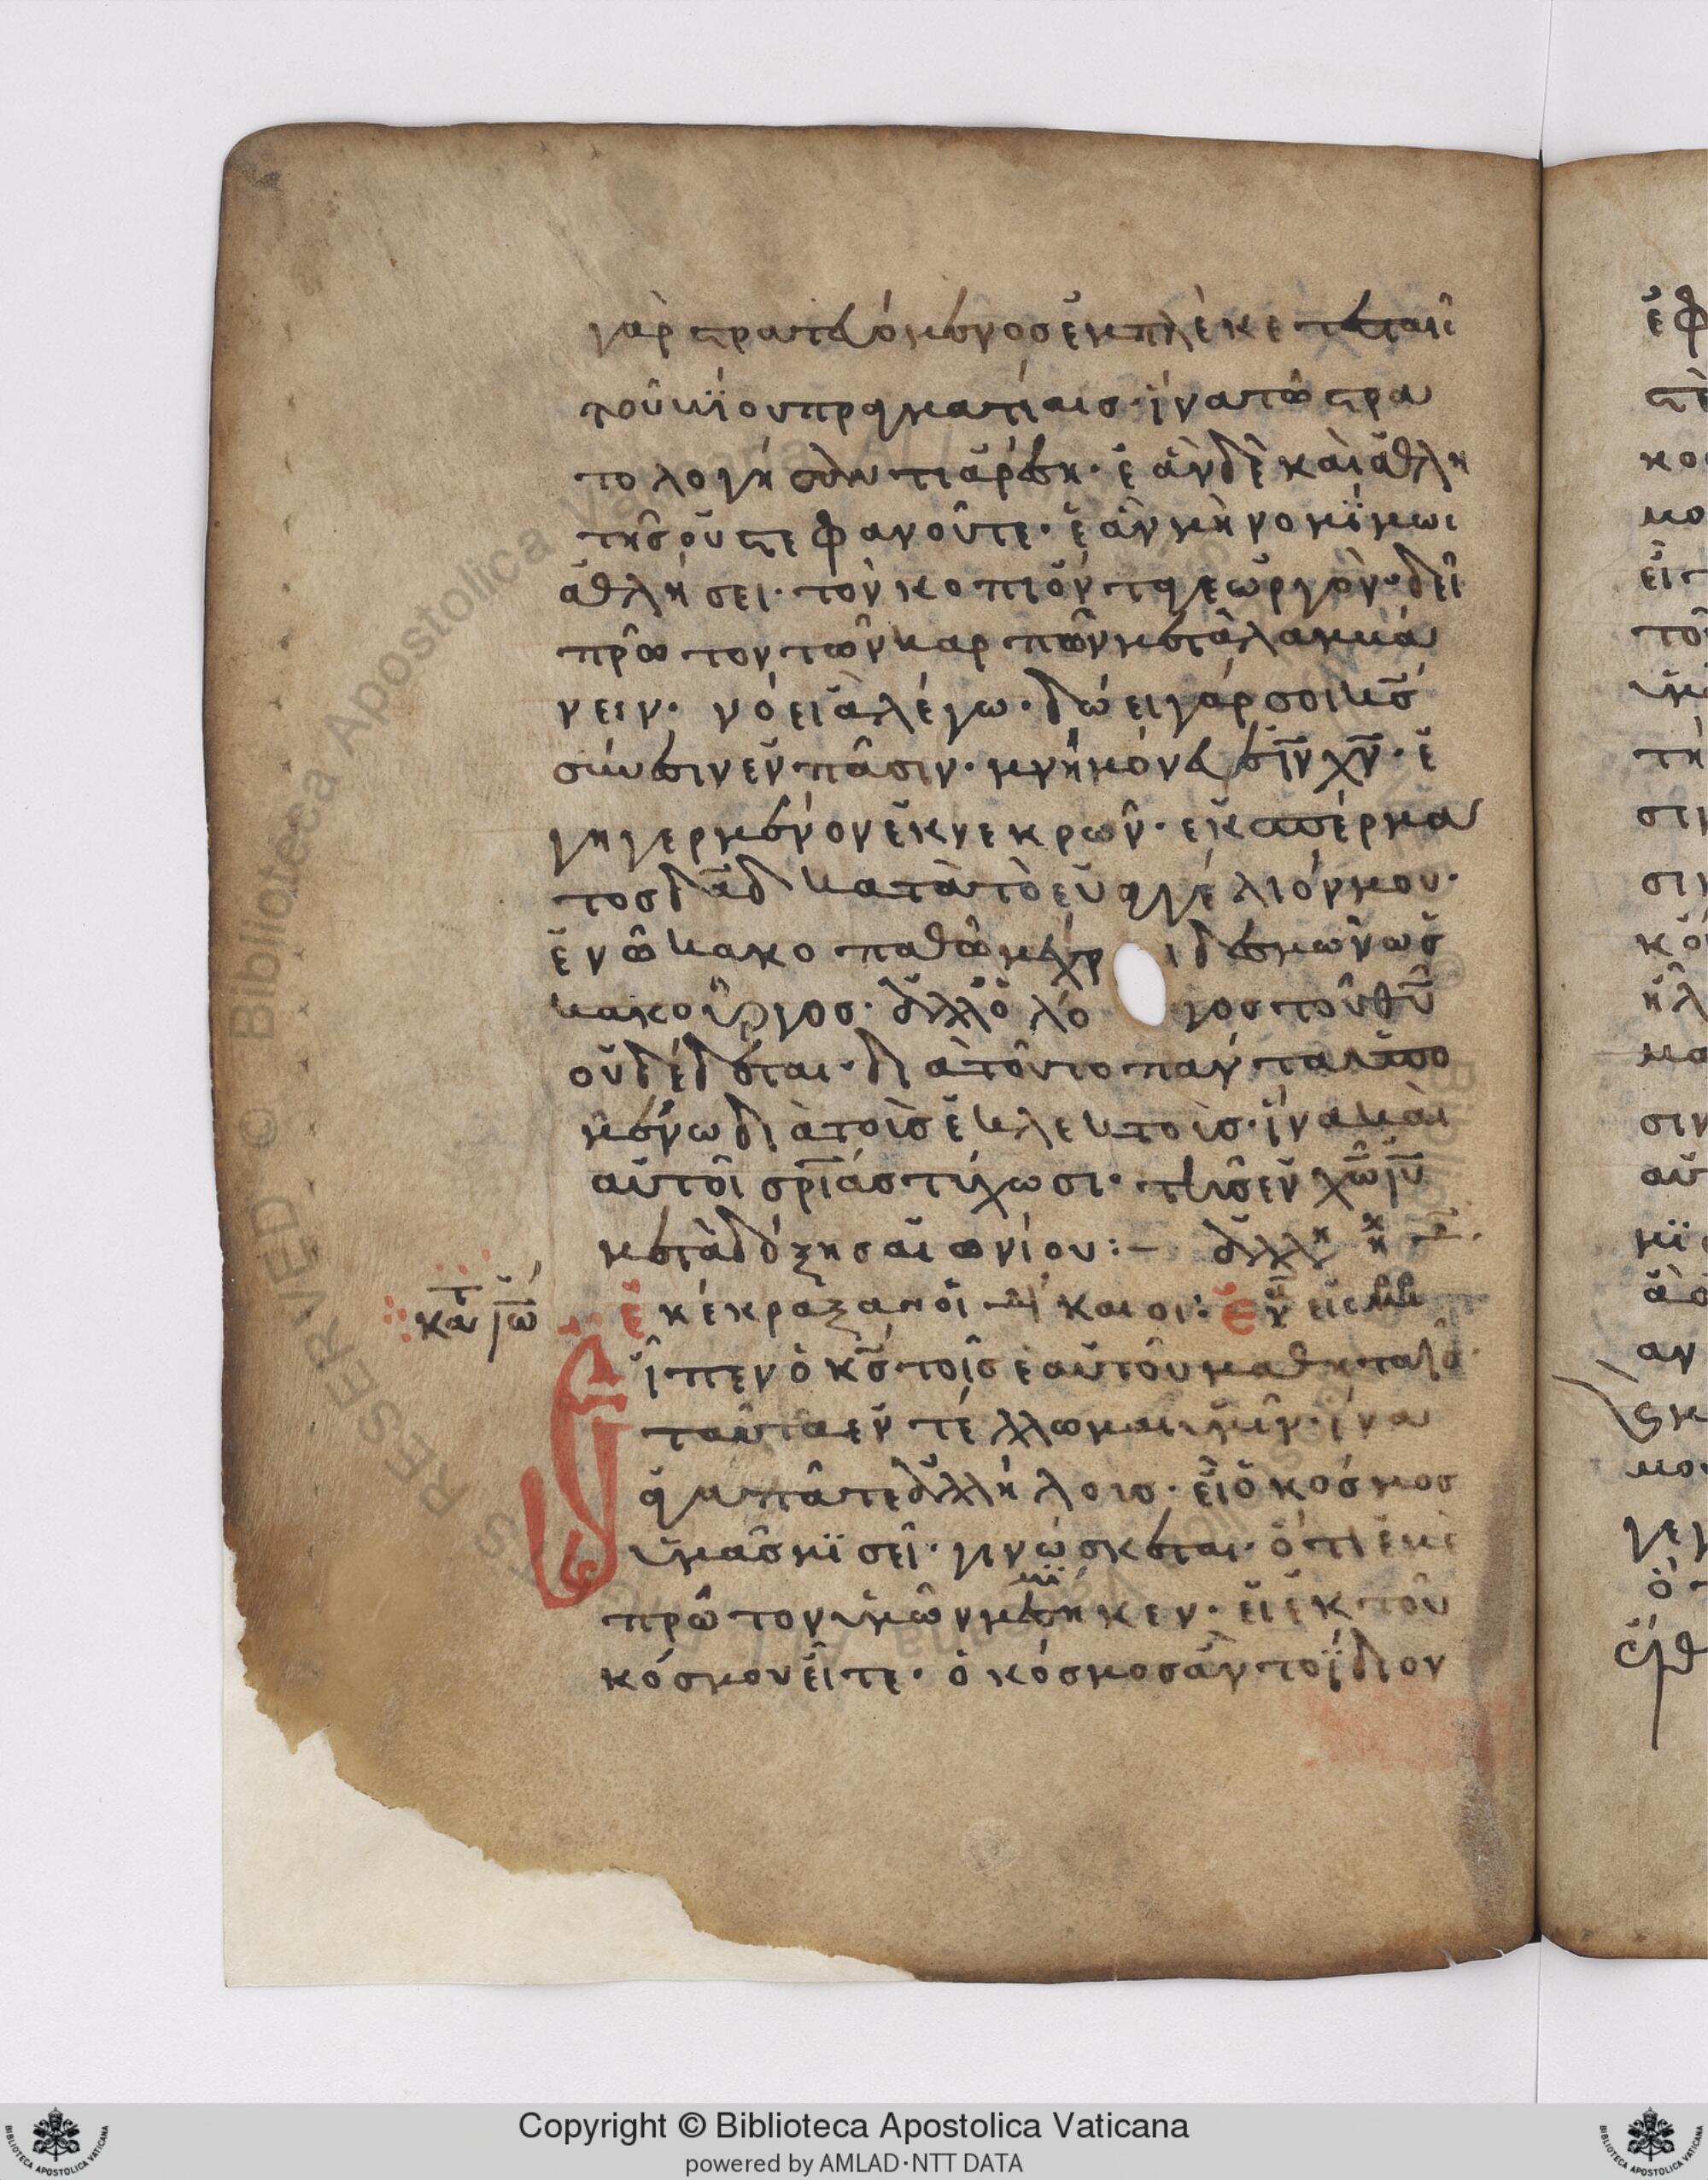 γὰρ στρατευόμενος ἐμπλέκεται ταῖ
τοῦ βίου πραγματίαις· ἵνα τῶ στρα
τολογήσαντι ἀρέση· ἐὰν δὲ καὶ ἀθλη
τῆς οὐ στεφανοῦτε· ἐὰν μὴ νομίμωι
ἀθλήσει· τὸν κοπιόντα γεωργὸν δεῖ
πρῶτον τῶν καρπῶν μεταλαμβά
νειν· νόει ἃ λέγω· δώει γάρ σοι κς
σύνεσιν ἐν πᾶσιν· μνημόνευε ιν χν· ἐ
γηγερμένον ἐκ νεκρῶν· εκ σπέρμα
τος δαδ κατὰ τὸ εὐαγγέλιόν μου·
ἐν ῶ κακοπαθῶ μέχρι δεσμῶν ὡς
κακοῦργος· ἀλλ ὁ λόγος τοῦ θυ
οὐ δέδεται· διὰ τοῦτο πάντα ὑπο
μένω διὰ τοὶς ἐκλεκτοὶς· ἵνα καὶ
αὐτοὶ σριας τύχωσι· τῆς ἐν χω ιυ
μετὰ δόξης αἰωνίου:–
ἐκέκραξαν οἱ δίκαιοι:
κατ ιω
Εἶπεν ὁ κς τοῖς ἑαυτοῦ μαθηταῖς·
ταῦτα ἐντέλλωμαι ὑμῖν· ἵνα
ἀγαπᾶτε ἀλλήλοις· εἰ ὁ κόσμος
ὑμᾶς μισεῖ· γινώσκεται· ὅτι ἐμὲ
πρῶτον ὑμῶν μεμίσηκεν· εἰ ἐκ τοῦ
κόσμου εἶτε· ὁ κόσμος ἂν τὸ ἴδιον
Copyright © Biblioteca Apostolica Vaticana
powered by AMLAD·NTT DATA